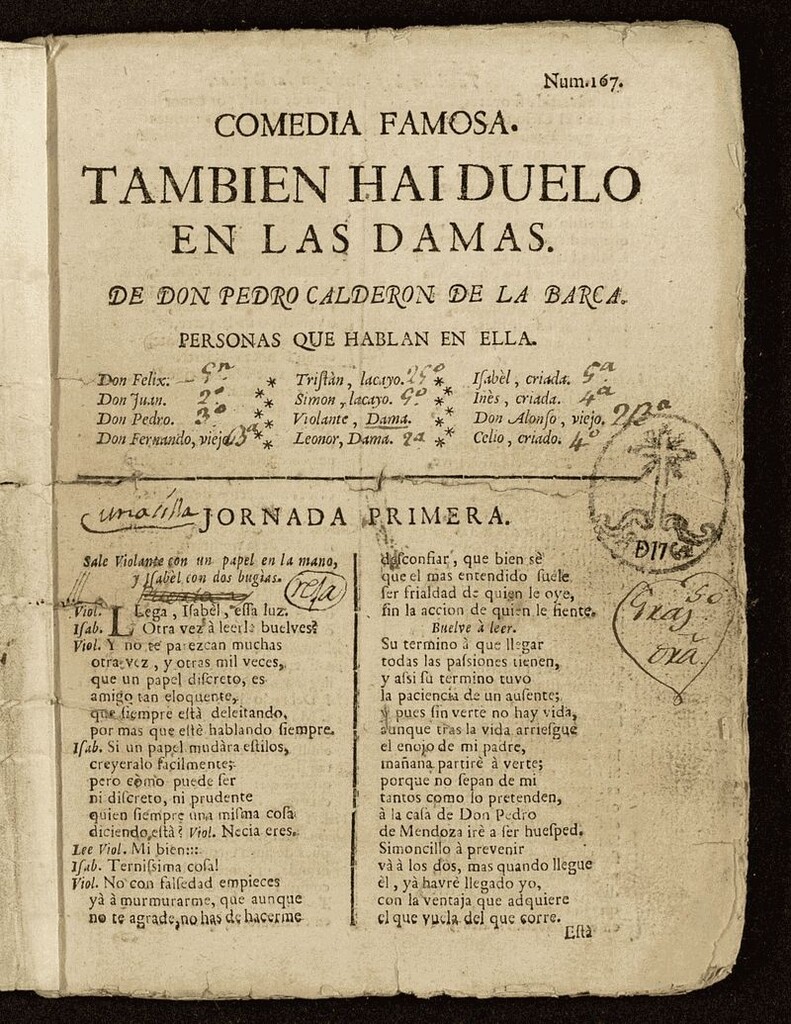 Num.167.
COMEDIA FAMOSA.
TAMBIEN HAI DUELO
EN LAS DAMAS.
DE DON PEDRO CALDERON DE LA BARCA.
PERSONAS QUE HABLAN EN ELLA.
Don Felix. * Triſtàn, lacayo. 25º * Iſabèl, criada. 5ª
Don Juan. 2º * Simon, lacayo. * Inès, criada. 4ª
Don Pedro. 3º * Violante, Dama. * Don Alonſo, viejo.
Don Fernando, viejo * Leonor, Dama. 2ª * Celio, criado. 4º
una silla JORNADA PRIMERA.
Sale Violante con un papel en la mano,
y Iſabèl con dos bugias. reja
Viol. LLega, Iſabèl, eſſa luz.
Iſab. Otra vez à leerle buelves?
Viol. Y no te parezcan muchas
otra vez, y otras mil veces,
que un papel diſcreto, es
amigo tan eloquente,
que ſiempre eſtà deleitando,
por mas que eſtè hablando ſiempre.
Iſab. Si un papel mudàra eſtilos,
creyeralo facilmente;
pero còmo puede ſer
ni diſcreto, ni prudente
quien ſiempre una miſma coſa
diciendo eſtà? Viol. Necia eres.
Lee Viol. Mi bien:::
Iſab. Terniſsima coſa!
Viol. No con falſedad empieces
yà à murmurarme, que aunque
no te agrade, no has de hacerme
deſconfiar, que bien sè
que el mas entendido ſuele
ſer frialdad de quien le oye,
ſin la accion de quien le ſiente.
Buelve à leer.
Su termino à que llegar
todas las paſsiones tienen,
y aſsi ſu termino tuvo
la paciencia de un auſente;
y pues ſin verte no hay vida,
aunque tras la vida arrieſgue
el enojo de mi padre,
mañana partirè à verte;
porque no ſepan de mi
tantos como lo pretenden,
à la caſa de Don Pedro
de Mendoza irè à ſer hueſped.
Simoncillo à prevenir
và à los dos, mas quando llegue
èl, yà havrè llegado yo,
con la ventaja que adquiere
el que vuela del que corre.
Eſtà